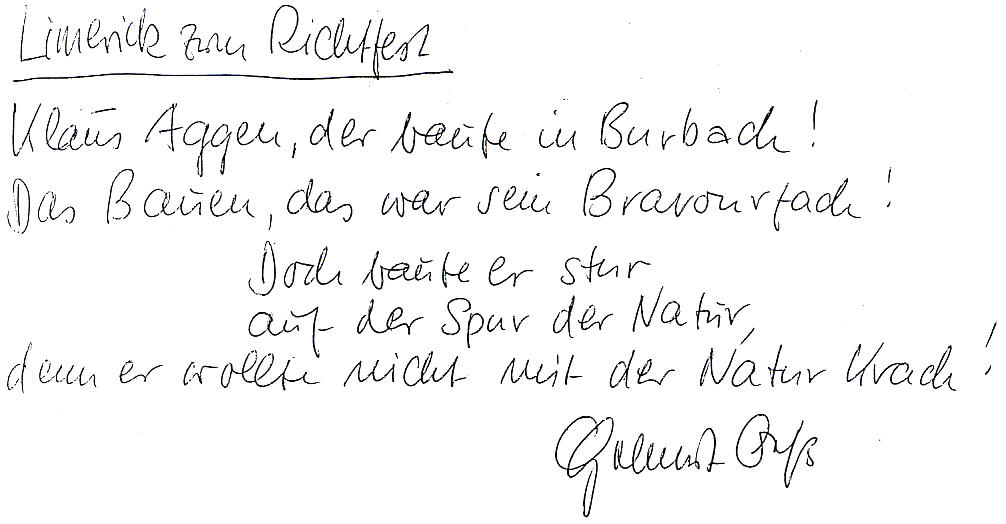 Limerick zum Richtfest
Klaus Aggen, der baute in Burbach!
Das Bauen, das war sein Bravourfach!
Doch baute er stur
auf der Spur der Natur,
denn er wollte nicht mit der Natur Krach!